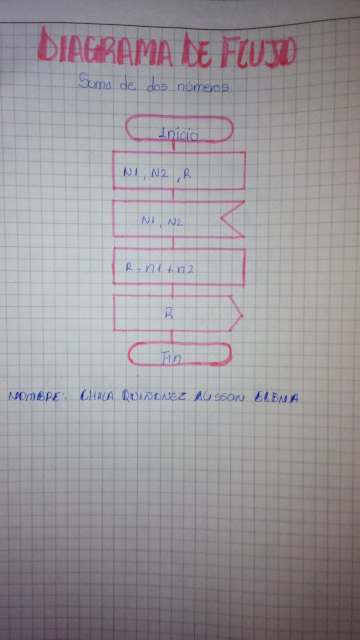 DIAGRAMA DE FLUJO
Suma de dos números
Inicio
N1, N2, R
N1, N2
R=n1+n2
R
Fin
NOMBRE: CHILA QUIÑONEZ ALISSON ELENA